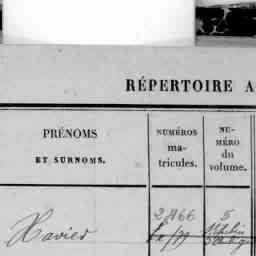 RÉPERTOIRE A
PRÉNOMS
ET SURNOMS.
NUMÉROS
ma-
tricules.
NU-
MÉRO
du
volume.
Xavier
2,466
5